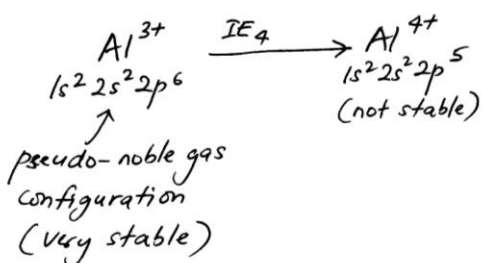 Al³⁺ IE₄ Al⁴⁺
1s² 2s² 2p⁶ 1s² 2s² 2p⁵
(not stable)
pseudo-noble gas
configuration
(very stable)